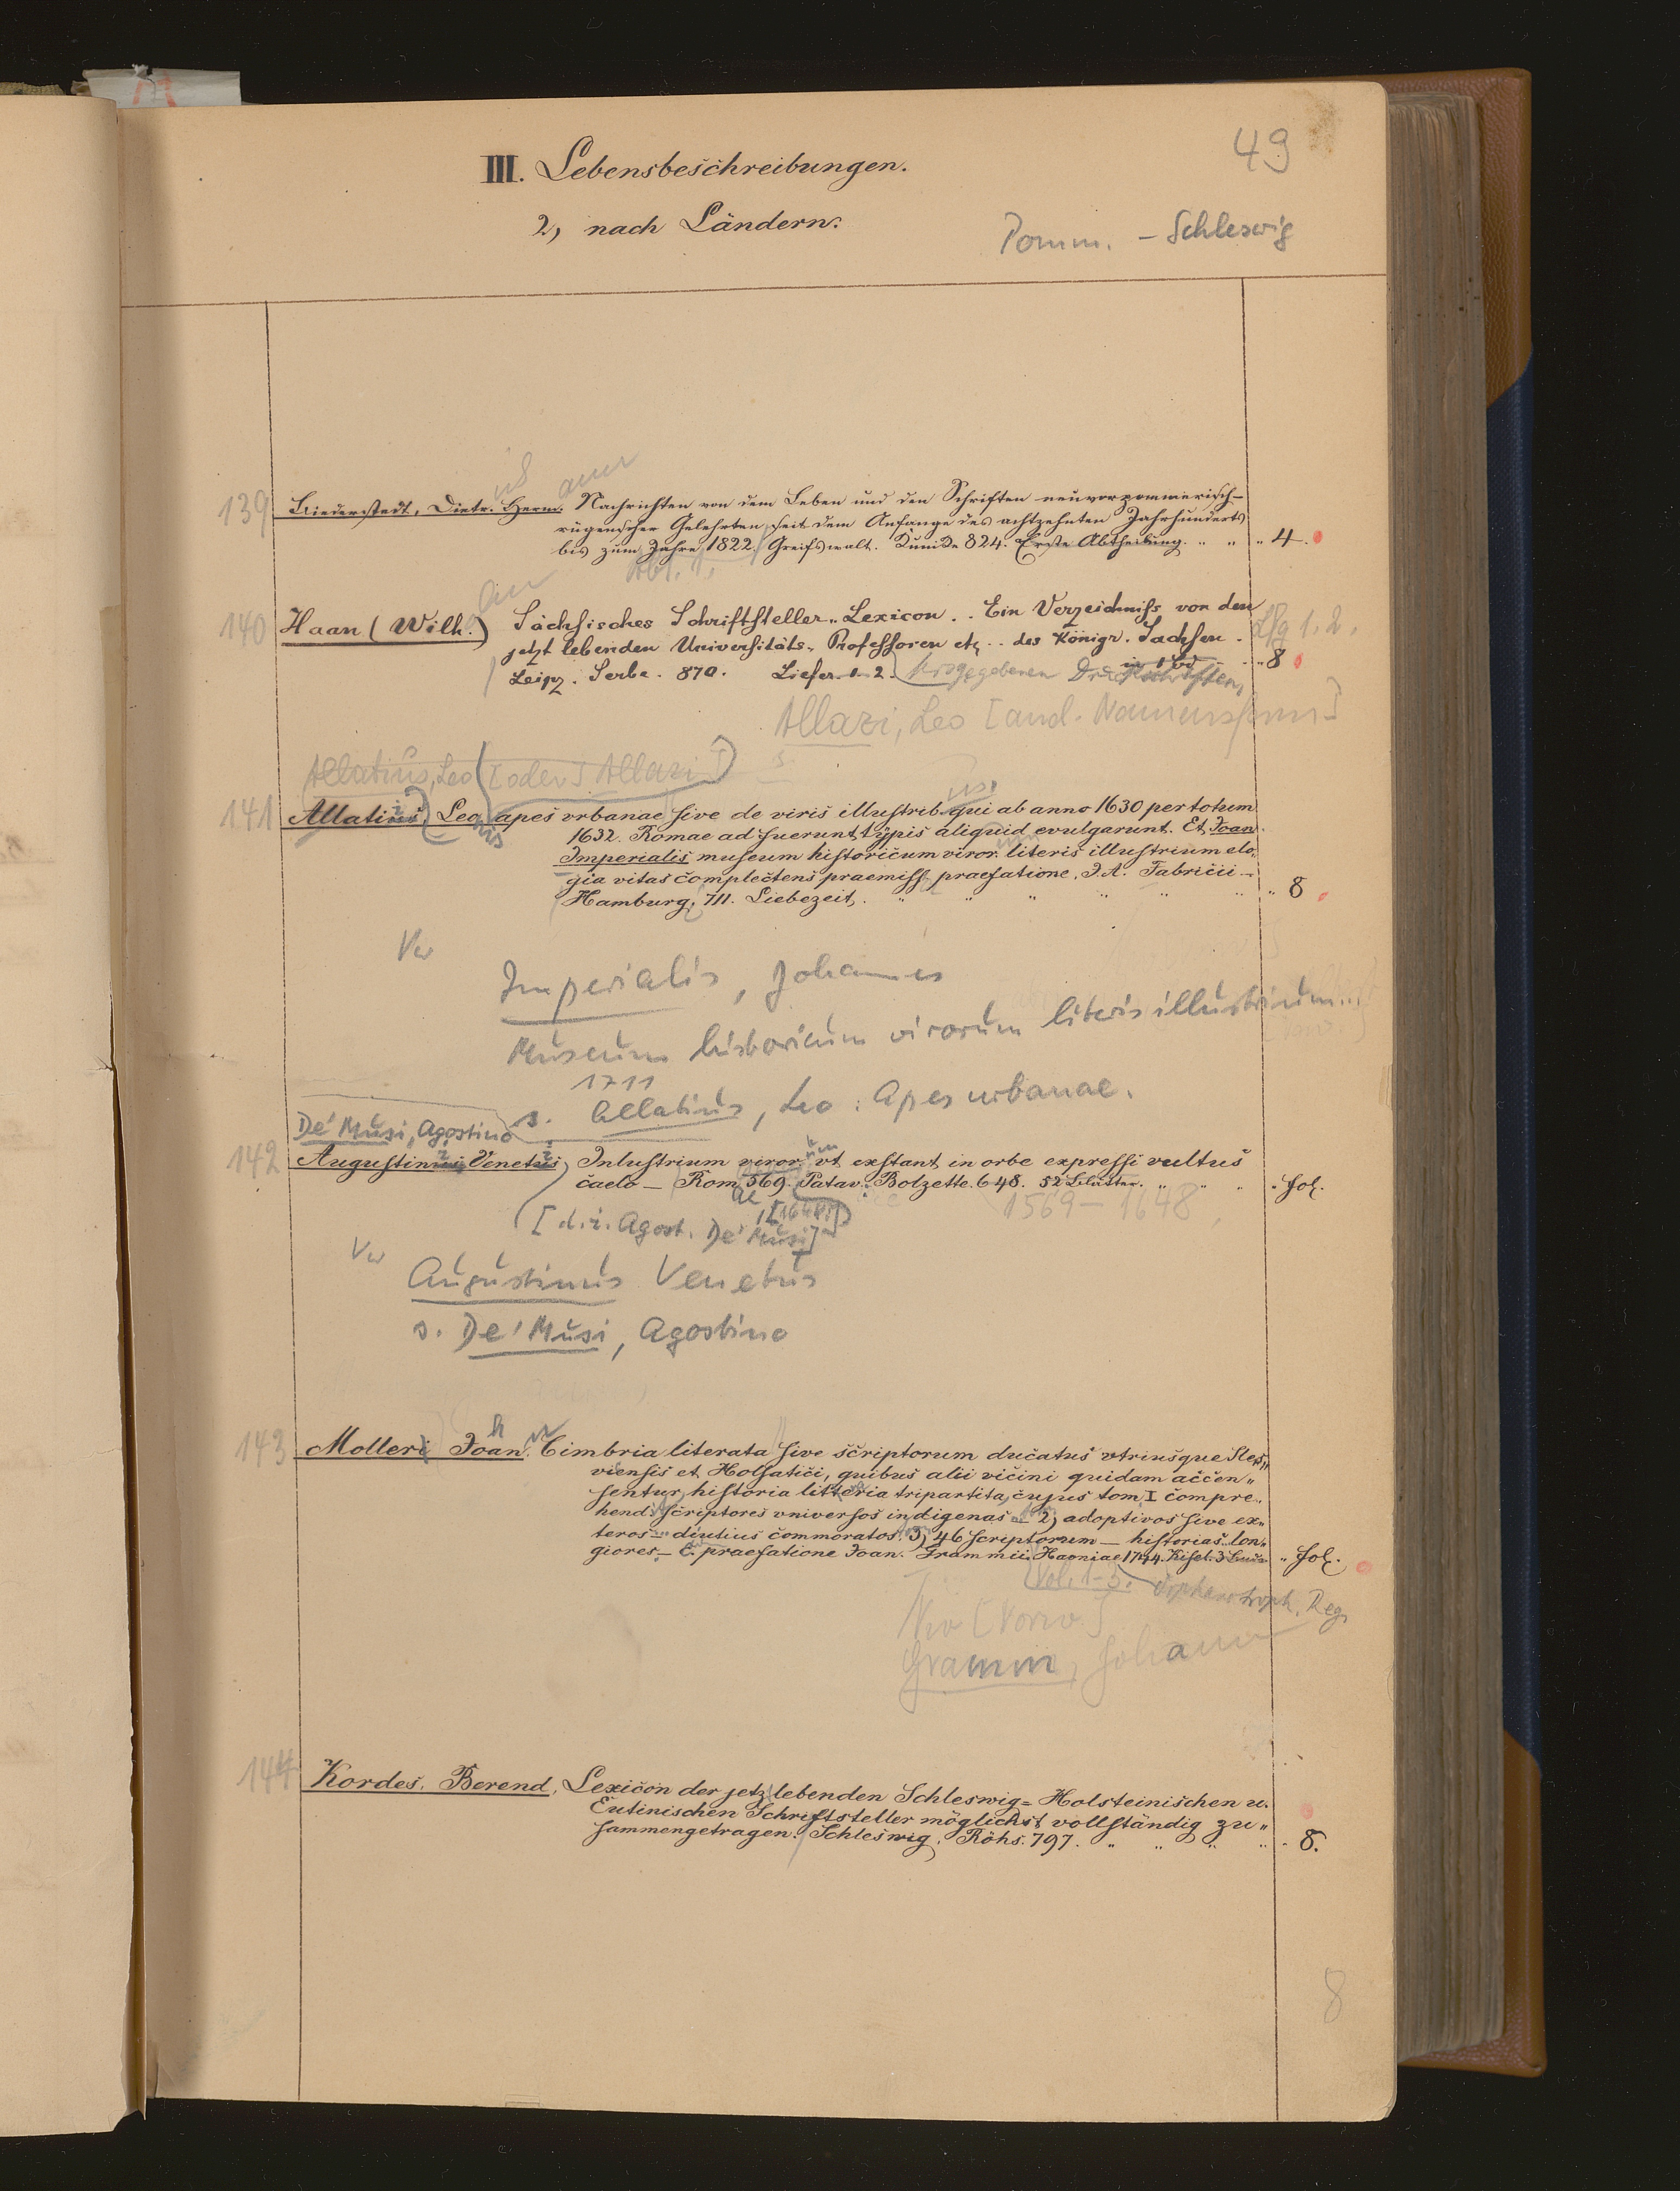 49
III. Lebensbeschreibungen.
2, nach Ländern.
Pomm. – Schleswig
us ann
139 Biederstedt, Dietr. Herm. Nachrichten von dem Leben und den Schriften neuvorpommerisch-
rügenscher Gelehrten seit dem Anfange des achtzehnten Jahrhunderts
bis zum Jahre 1822. Greifswalt. Kunike 824. Erste Abtheilung. " " " 4.
Abt. 1.
140 Haan (Wilh.) Sächsisches Schriftsteller-Lexicon. Ein Verzeichniss von den
jetzt lebenden Universitäts-Professoren etc. des Königr. Sachsen. Lfg 1.2.
Leipz. Serbe. 870. Liefer. 1-2. hrsgegebenen Druckschriften in 1 Bd " 8
Allazi, Leo [and. Namensform]
Allatius, Leo [oder] Allazi s
us.
141 Allatius, Leo, apes vrbanae sive de viris illustrib. qui ab anno 1630 per totum
1632. Romae adfuerunt, typis aliquid evulgarunt. Et Joan.
Imperialis museum historicum viror. literis illustrium elo-
gia vitas complectens praemiss. praefatione. J. A. Fabricii –
Hamburg, 711. Liebezeit. " " " " " " " 8
Vw
Imperialis, Johannes
Museum historicum virorum literis illustrium...
1711
s. Allatius, Leo: Apes urbanae.
De' Musi, Agostino
142 Augustinus Venetus, Inlustrium viror. vt exstant in orbe expressi vultus
caelo – Rom. 569. Patav. Bolzette. 648. 52 Blätter. " " " " fol.
1569 – 1648,
ae, [1648]
[d. i. Agost. De' Musi]
Vw
Augustinus Venetus
s. De' Musi, Agostino
h
143 Molleri Joan. Cimbria literata sive scriptorum ducatus vtriusque Sles-
vicensis et Holsatici, quibus alii vicini quidam accen-
sentur, historia litteria tripartita, cujus tom. I compre-
hend. scriptores vniversos indigenas – 2, adoptivos sive ex-
teros – diutius commoratos. 3, 46 scriptorum – historias lon-
giores – C. praefatione Joan. Grammii. Havniae 1744. Kisel. 3 Bde " fol.
Vol. 1-3. Orphanotroph. Reg.
Vw [Vorw.]
Gramm, Johann
144 Kordes, Berend, Lexicon der jetz lebenden Schleswig-Holsteinischen u.
Eutinischen Schriftsteller möglichst vollständig zu-
sammengetragen. Schleswig, Röhs. 797. " " " " " 8.
8